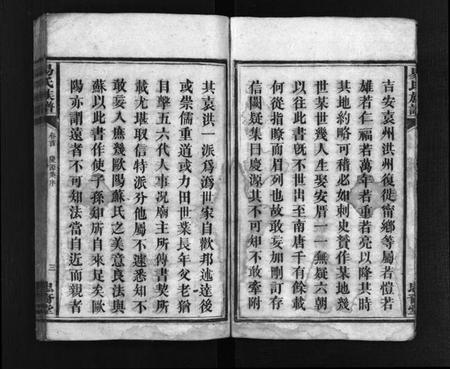 吉安袁州洪州復從甯鄉等屬者愷若
雄若仁福若萬年若重若亮以降其時
其地約略可稽必如刺史贊作某地幾
世某世幾人生娶安厝一一無疑六朝
以往此書既不世出至南唐千有餘載
何從指瞭而眉列也故敢妄加刪訂存
信闕疑集曰慶源其不可知不敢牽附
其袁洪一派為溈世家自歡邦述達後
或崇儒重道或力田世業長年父老猶
目擊五六代人事況廟主所傳書契所
載尤堪取信特派分他屬不速悉知不
敢妄入庶幾歐陽蘇氏之美意良法與
蘇以此書作使子孫知所自來足矣歐
陽亦謂遠者不可知法當自近而親者
易氏族譜
卷首
慶源集序
三
思齊堂